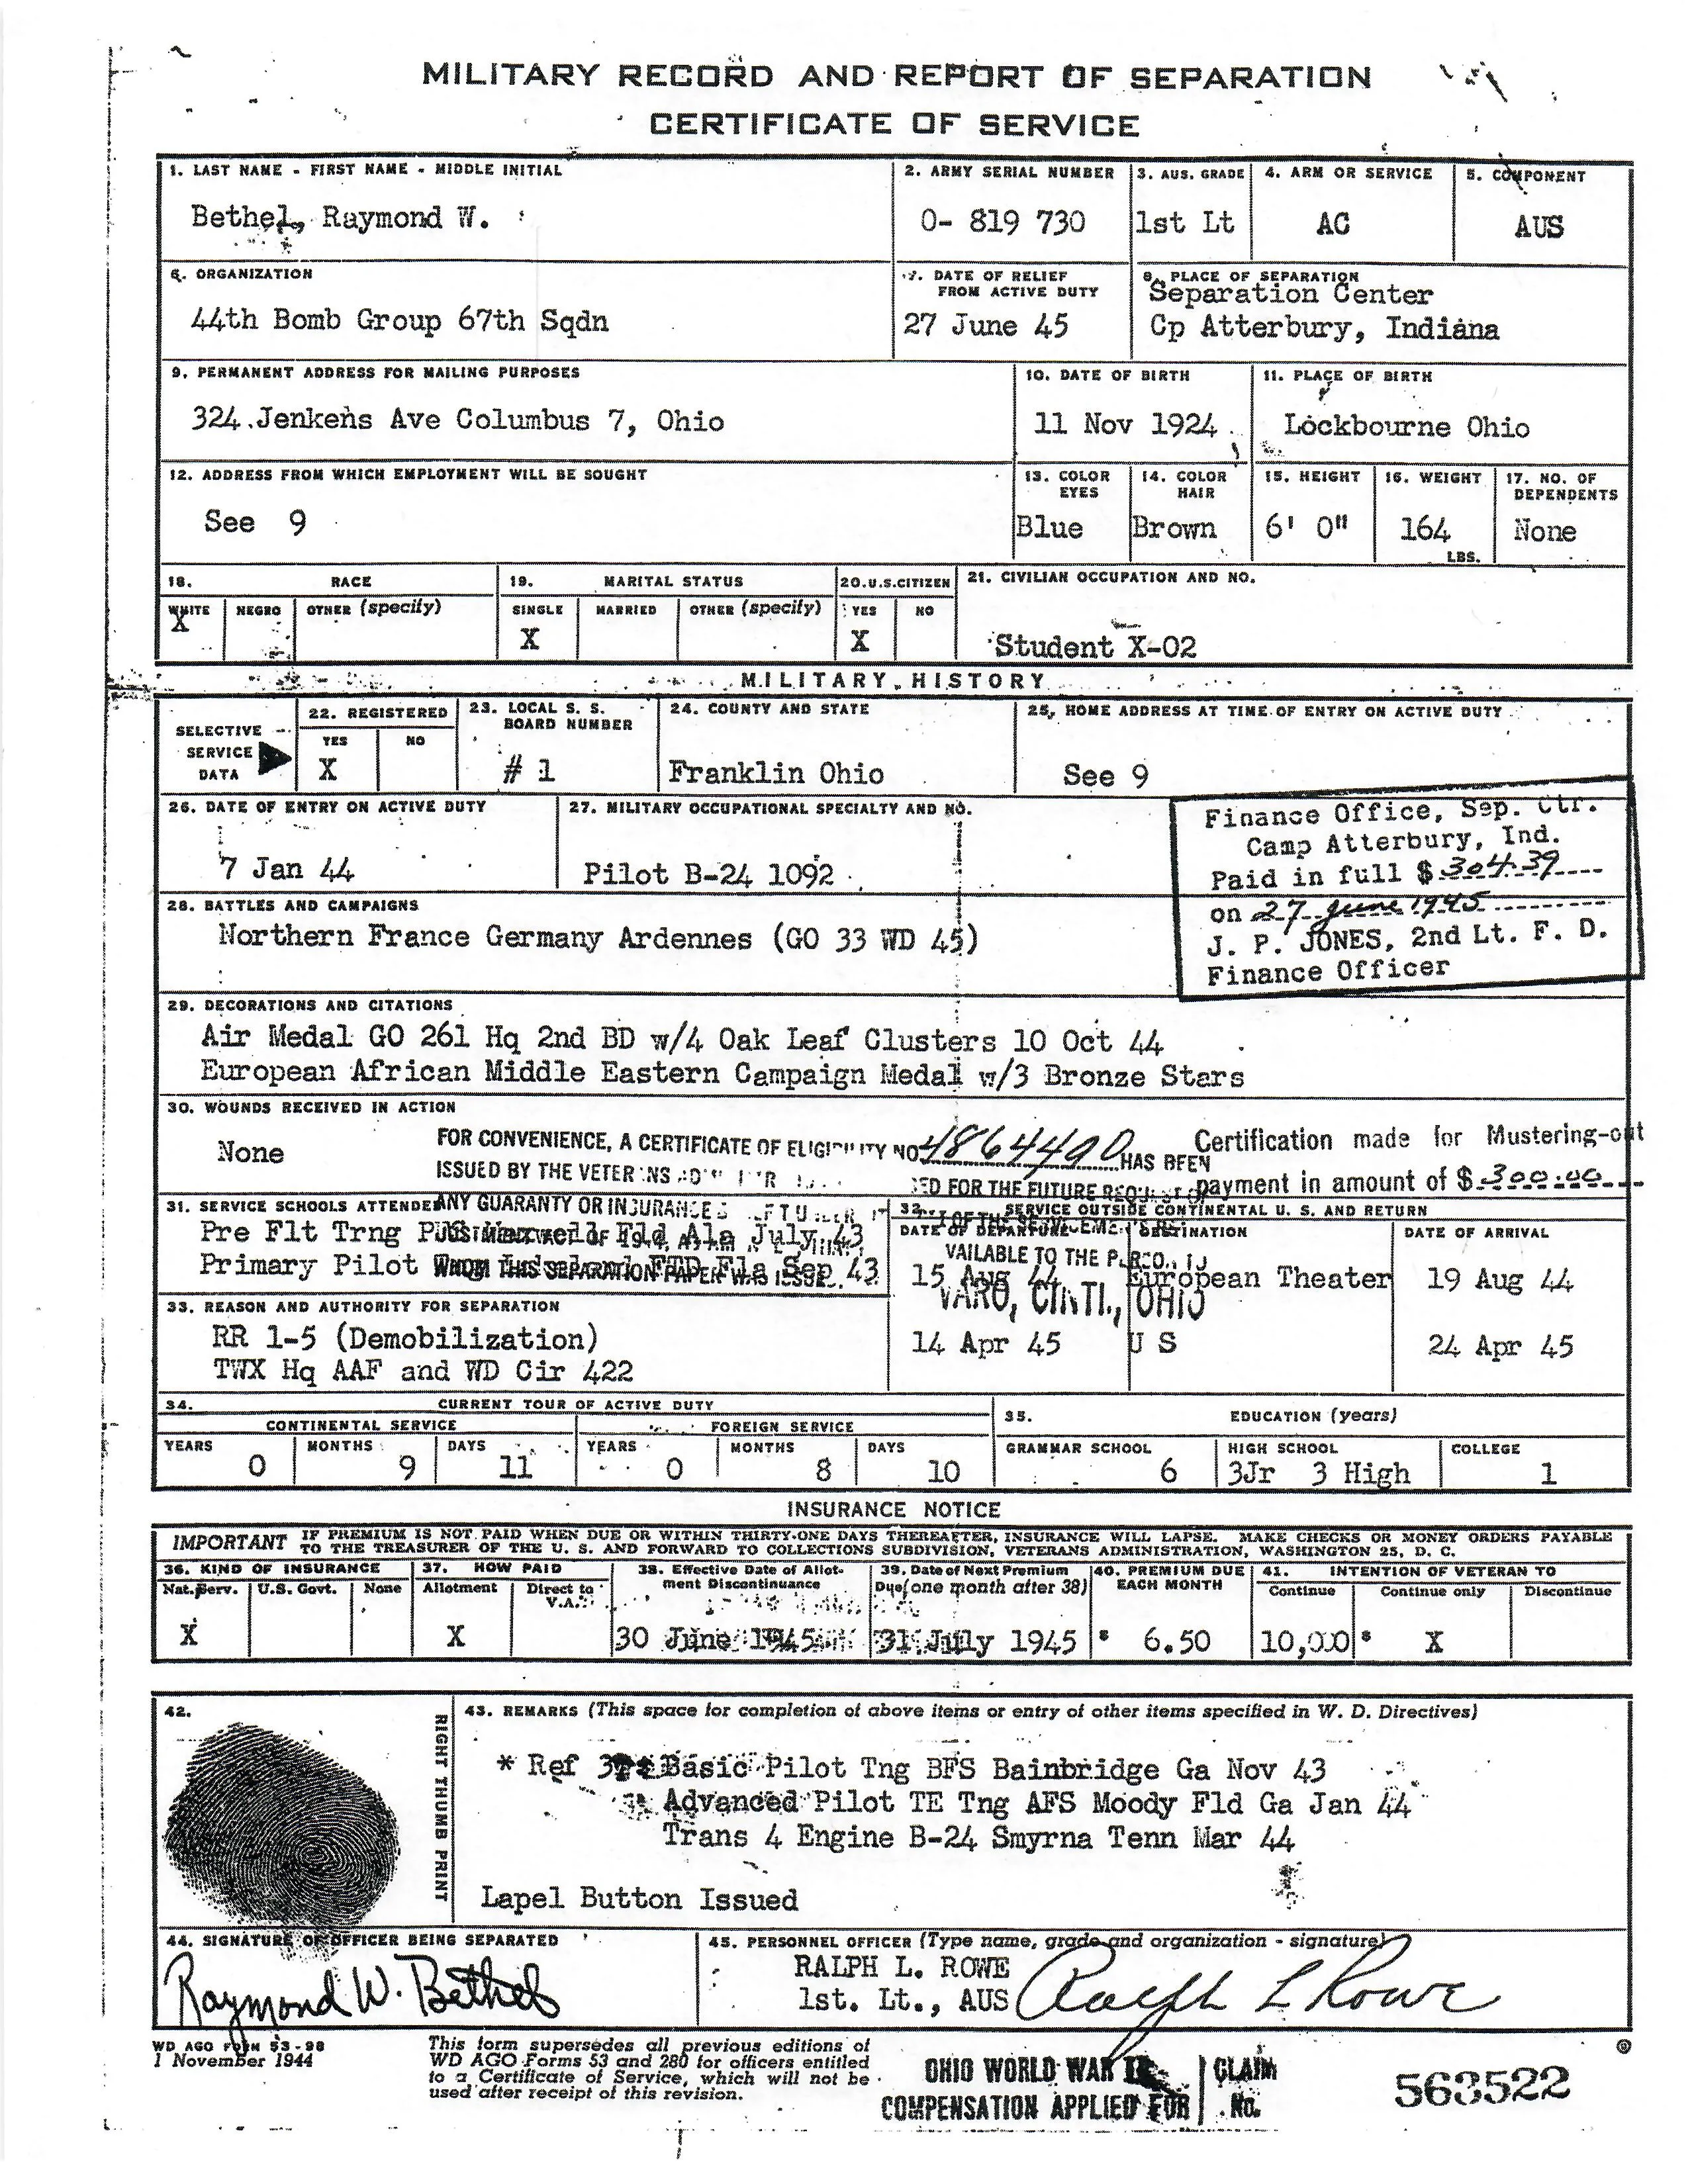 MILITARY RECORD AND REPORT OF SEPARATION
CERTIFICATE OF SERVICE
1. LAST NAME - FIRST NAME - MIDDLE INITIAL
Bethel, Raymond W.
2. ARMY SERIAL NUMBER
O- 819 730
3. AUS. GRADE
1st Lt
4. ARM OR SERVICE
AC
5. COMPONENT
AUS
6. ORGANIZATION
44th Bomb Group 67th Sqdn
7. DATE OF RELIEF
FROM ACTIVE DUTY
27 June 45
8. PLACE OF SEPARATION
Separation Center
Cp Atterbury, Indiana
9. PERMANENT ADDRESS FOR MAILING PURPOSES
324 Jenkens Ave Columbus 7, Ohio
10. DATE OF BIRTH
11 Nov 1924
11. PLACE OF BIRTH
Lockbourne Ohio
12. ADDRESS FROM WHICH EMPLOYMENT WILL BE SOUGHT
See 9
13. COLOR
EYES
Blue
14. COLOR
HAIR
Brown
15. HEIGHT
6' 0"
16. WEIGHT
164
LBS.
17. NO. OF
DEPENDENTS
None
18. RACE
WHITE NEGRO OTHER (specify)
X
19. MARITAL STATUS
SINGLE MARRIED OTHER (specify)
X
20. U.S. CITIZEN
YES NO
X
21. CIVILIAN OCCUPATION AND NO.
Student X-02
MILITARY HISTORY
SELECTIVE
SERVICE
DATA
22. REGISTERED
YES NO
X
23. LOCAL S. S.
BOARD NUMBER
# 1
24. COUNTY AND STATE
Franklin Ohio
25. HOME ADDRESS AT TIME OF ENTRY ON ACTIVE DUTY
See 9
26. DATE OF ENTRY ON ACTIVE DUTY
7 Jan 44
27. MILITARY OCCUPATIONAL SPECIALTY AND NO.
Pilot B-24 1092
Finance Office, Sep. Ctr.
Camp Atterbury, Ind.
Paid in full $ 304.39
on 27 June 1945
J. P. JONES, 2nd Lt. F. D.
Finance Officer
28. BATTLES AND CAMPAIGNS
Northern France Germany Ardennes (GO 33 WD 45)
29. DECORATIONS AND CITATIONS
Air Medal GO 261 Hq 2nd BD w/4 Oak Leaf Clusters 10 Oct 44
European African Middle Eastern Campaign Medal w/3 Bronze Stars
30. WOUNDS RECEIVED IN ACTION
None
FOR CONVENIENCE, A CERTIFICATE OF ELIGIBILITY NO. 4864490 HAS BEEN
ISSUED BY THE VETERANS
FOR THE FUTURE
ANY GUARANTY OR INSURANCE
AVAILABLE TO THE
WHOM THIS SEPARATION PAPER WAS ISSUED
VARO, CINTI., OHIO
Certification made for Mustering-out
payment in amount of $ 300.00
31. SERVICE SCHOOLS ATTENDED
Pre Flt Trng Maxwell Fld Ala July 43
Primary Pilot FTD Fla Sep 43
32. SERVICE OUTSIDE CONTINENTAL U. S. AND RETURN
DATE OF DEPARTURE DESTINATION DATE OF ARRIVAL
15 Aug 44 European Theater 19 Aug 44
14 Apr 45 U S 24 Apr 45
33. REASON AND AUTHORITY FOR SEPARATION
RR 1-5 (Demobilization)
TWX Hq AAF and WD Cir 422
34. CURRENT TOUR OF ACTIVE DUTY
CONTINENTAL SERVICE FOREIGN SERVICE
YEARS MONTHS DAYS YEARS MONTHS DAYS
0 9 11 0 8 10
35. EDUCATION (years)
GRAMMAR SCHOOL HIGH SCHOOL COLLEGE
6 3Jr 3 High 1
INSURANCE NOTICE
IMPORTANT IF PREMIUM IS NOT PAID WHEN DUE OR WITHIN THIRTY-ONE DAYS THEREAFTER, INSURANCE WILL LAPSE. MAKE CHECKS OR MONEY ORDERS PAYABLE
TO THE TREASURER OF THE U. S. AND FORWARD TO COLLECTIONS SUBDIVISION, VETERANS ADMINISTRATION, WASHINGTON 25, D. C.
36. KIND OF INSURANCE
Nat. Serv. U.S. Govt. None
X
37. HOW PAID
Allotment Direct to
V.A.
X
38. Effective Date of Allot-
ment Discontinuance
30 June 1945
39. Date of Next Premium
Due (one month after 38)
31 July 1945
40. PREMIUM DUE
EACH MONTH
$ 6.50
41. INTENTION OF VETERAN TO
Continue Continue only Discontinue
10,000 $ X
42.
RIGHT THUMB PRINT
43. REMARKS (This space for completion of above items or entry of other items specified in W. D. Directives)
* Ref 31: Basic Pilot Tng BFS Bainbridge Ga Nov 43
Advanced Pilot TE Tng AFS Moody Fld Ga Jan 44
Trans 4 Engine B-24 Smyrna Tenn Mar 44
Lapel Button Issued
44. SIGNATURE OF OFFICER BEING SEPARATED
Raymond W. Bethel
45. PERSONNEL OFFICER (Type name, grade and organization - signature)
RALPH L. ROWE
1st. Lt., AUS
Ralph L Rowe
WD AGO FORM 53-98
1 November 1944
This form supersedes all previous editions of
WD AGO Forms 53 and 280 for officers entitled
to a Certificate of Service, which will not be
used after receipt of this revision.
OHIO WORLD WAR II
COMPENSATION APPLIED FOR
CLAIM
No.
563522